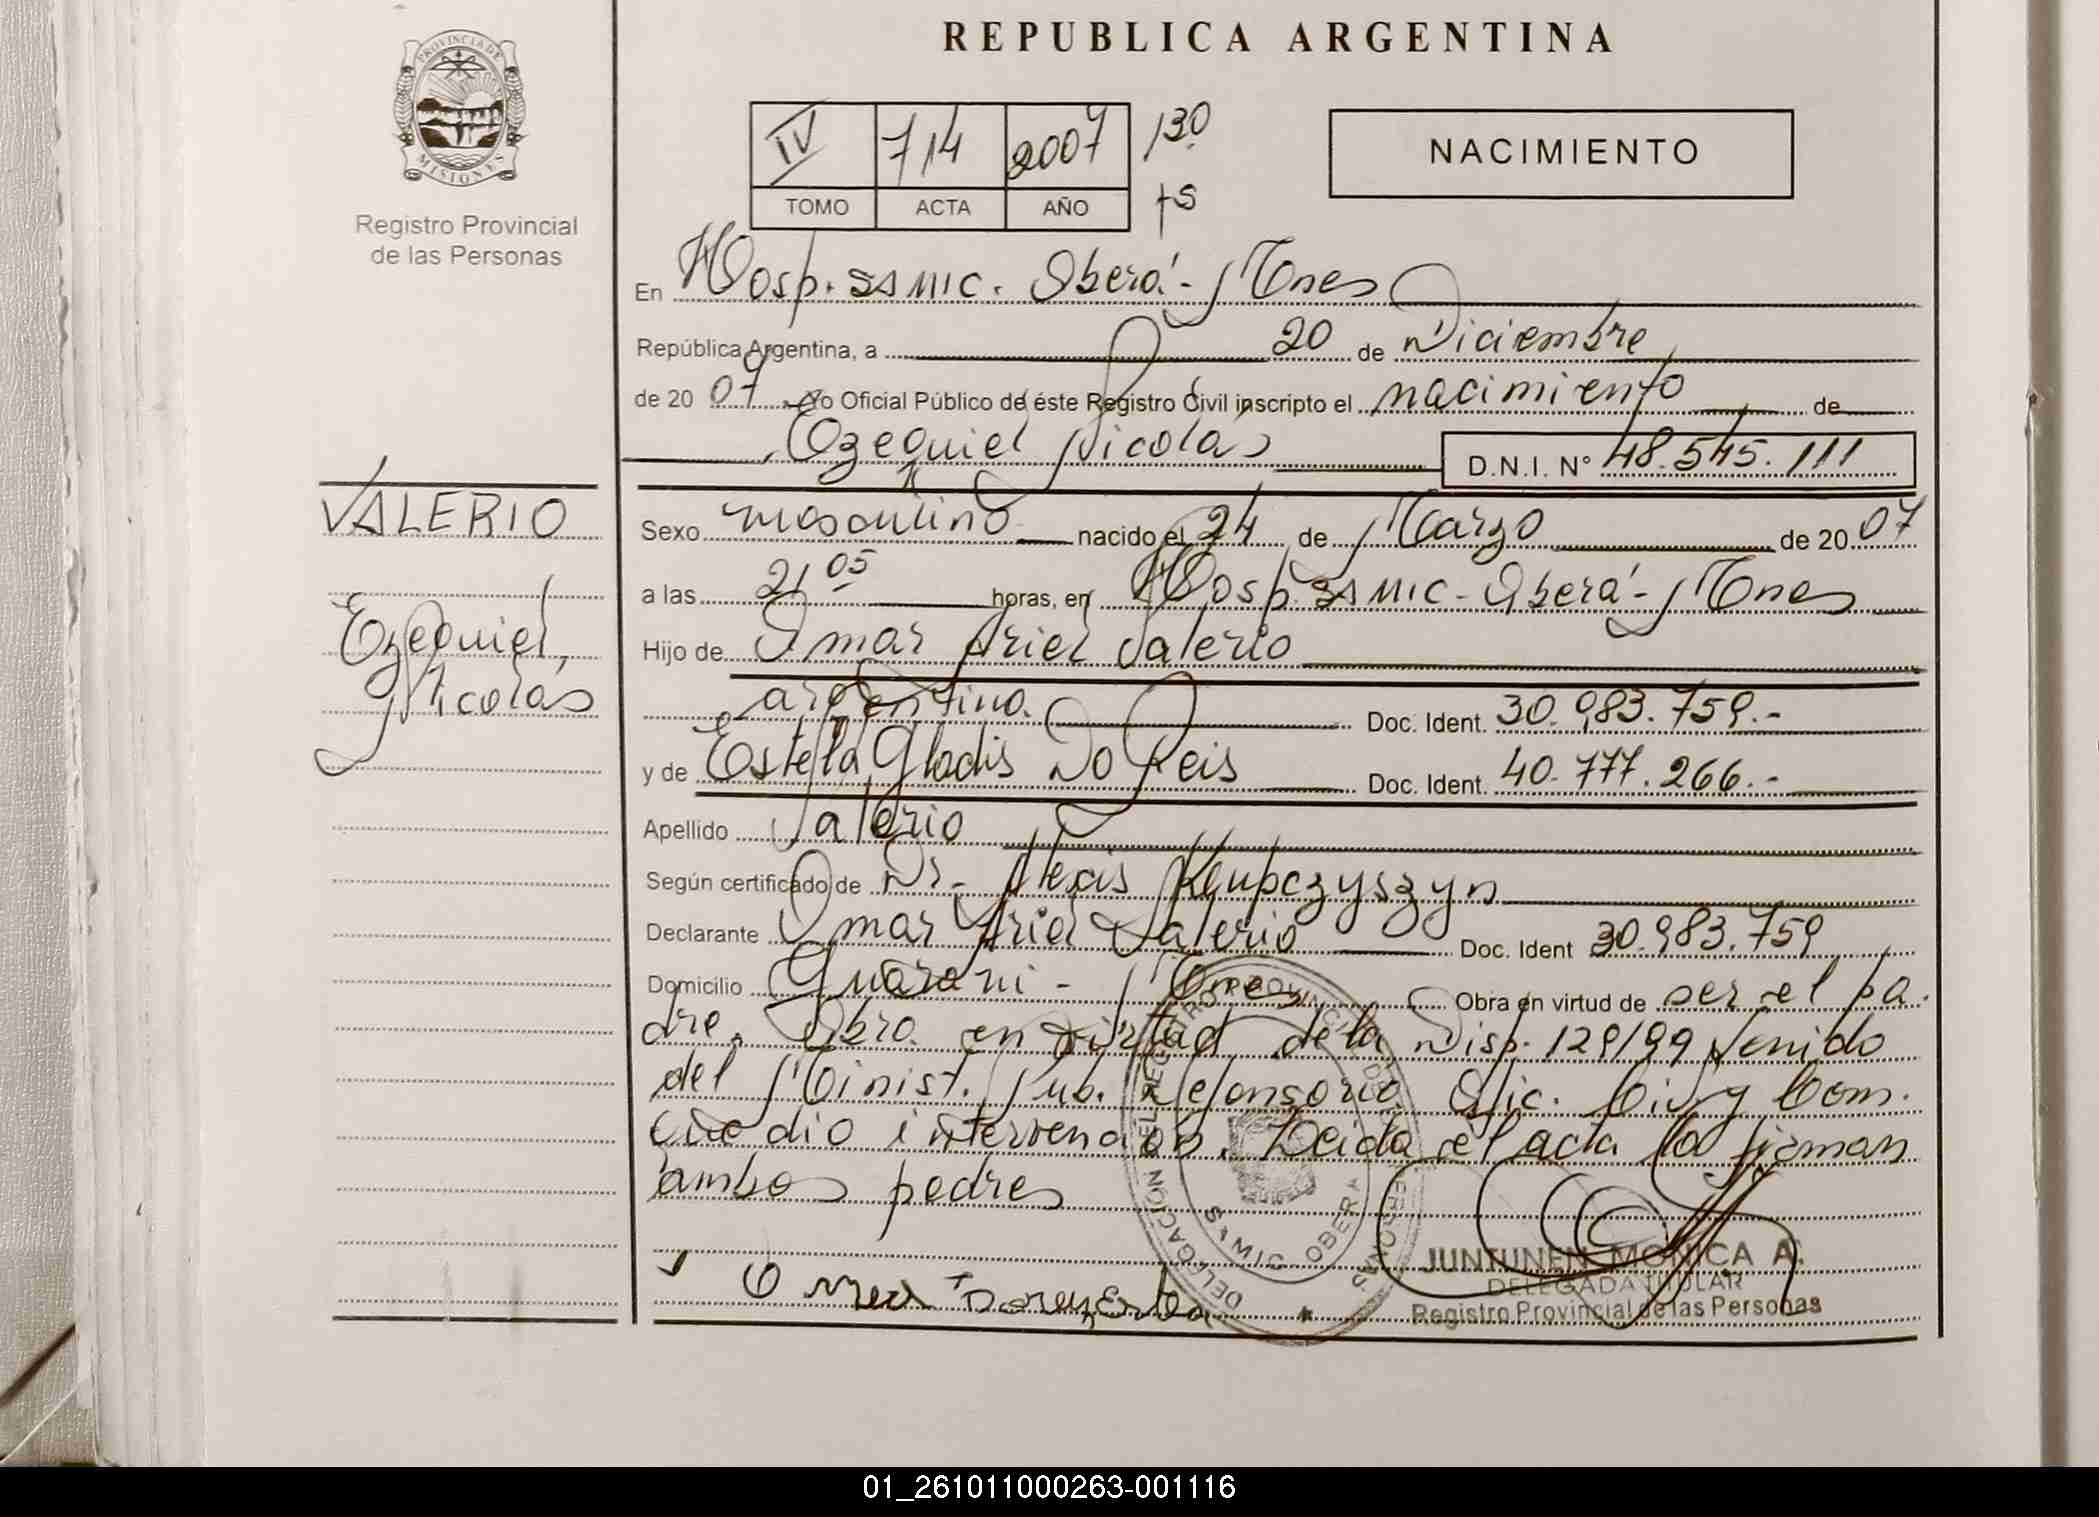 REPUBLICA ARGENTINA
PROVINCIA DE MISIONES
Registro Provincial
de las Personas
IV 714 2007 130
TOMO ACTA AÑO fs
NACIMIENTO
En Hosp. SAMIC. Oberá - Mnes
República Argentina, a 20 de Diciembre
de 20 07 Yo Oficial Público de éste Registro Civil inscripto el nacimiento de
Ezequiel Nicolás D.N.I. Nº 48.545.111
VALERIO
Ezequiel,
Nicolás
Sexo masculino nacido el 24 de Marzo de 20 07
a las 21 05 horas, en Hosp. SAMIC - Oberá - Mnes
Hijo de Omar Ariel Valerio
argentino. Doc. Ident. 30.983.759.-
y de Estela Gladis Do Reis Doc. Ident. 40.777.266.-
Apellido Valerio
Según certificado de Dr. Alexis
Declarante Omar Ariel Valerio Doc. Ident 30.983.759
Domicilio Guaraní - Mnes Obra en virtud de ser el pa-
dre. Obra en virtud de la Disp. 129/99 Venido
del Minist. Pub. Defensoria Ofic. Civ y Com.
que dio intervención. Leida el acta la firman
ambos padres
DELEGACIÓN DEL REGISTRO PROVINCIAL DE LAS PERSONAS
SAMIC OBERA
JUNTUNEN MONICA A.
DELEGADA TITULAR
Registro Provincial de las Personas
01_261011000263-001116